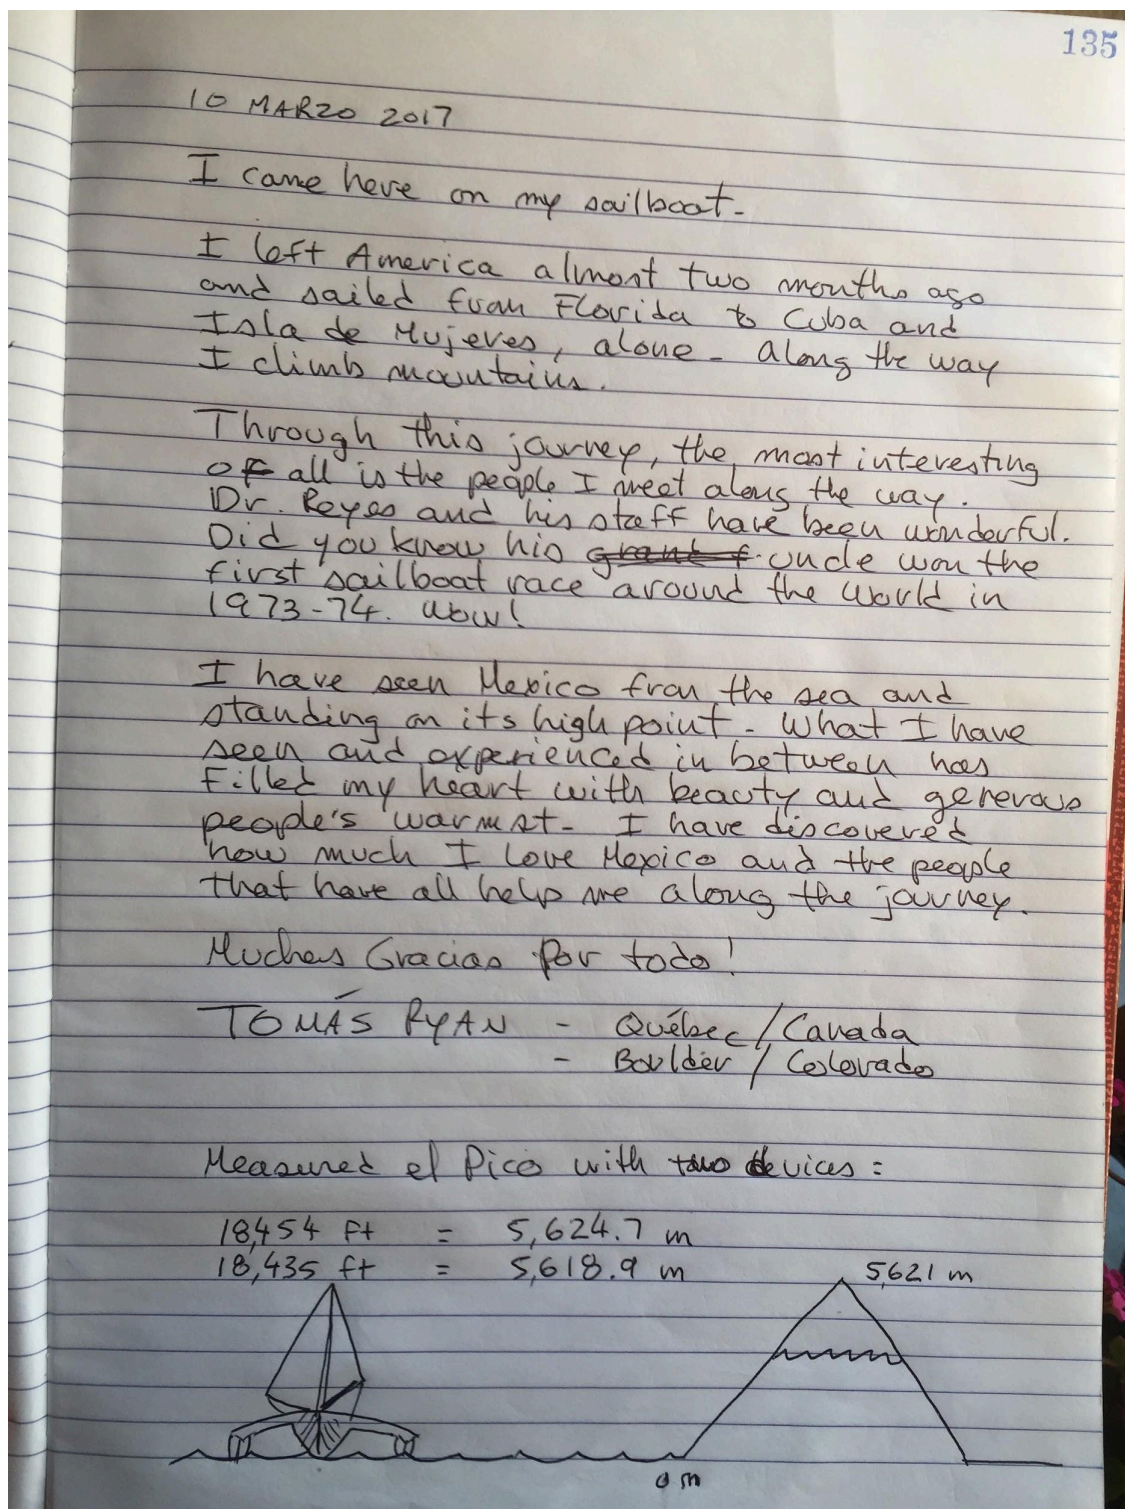 135
10 MARZO 2017
I came here on my sailboat.
I left America almost two months ago
and sailed from Florida to Cuba and
Isla de Mujeres, alone. Along the way
I climb mountains.
Through this journey, the most interesting
of all is the people I meet along the way.
Dr. Reyes and his staff have been wonderful.
Did you know his uncle won the
first sailboat race around the world in
1973-74. Wow!
I have seen Mexico from the sea and
standing on its high point. What I have
seen and experienced in between has
filled my heart with beauty and generous
people's warmst. I have discovered
how much I love Mexico and the people
that have all help me along the journey.
Muchas Gracias por todo!
TOMÁS RYAN - Québec / Canada
- Boulder / Colorado
Measured el Pico with two devices:
18,454 ft = 5,624.7 m
18,435 ft = 5,618.9 m
5,621 m
0 m